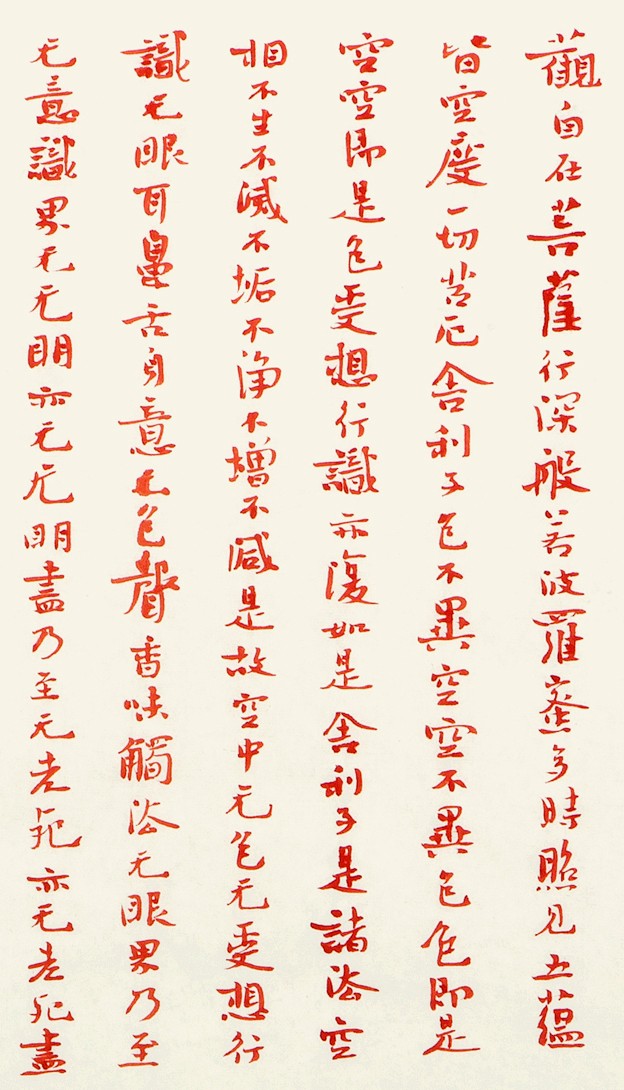 觀自在菩薩行深般若波羅蜜多時照見五蘊
皆空度一切苦厄舍利子色不異空空不異色色即是
空空即是色受想行識亦復如是舍利子是諸法空
相不生不滅不垢不淨不增不減是故空中无色无受想行
識无眼耳鼻舌身意无色聲香味觸法无眼界乃至
无意識界无无明亦无无明盡乃至无老死亦无老死盡